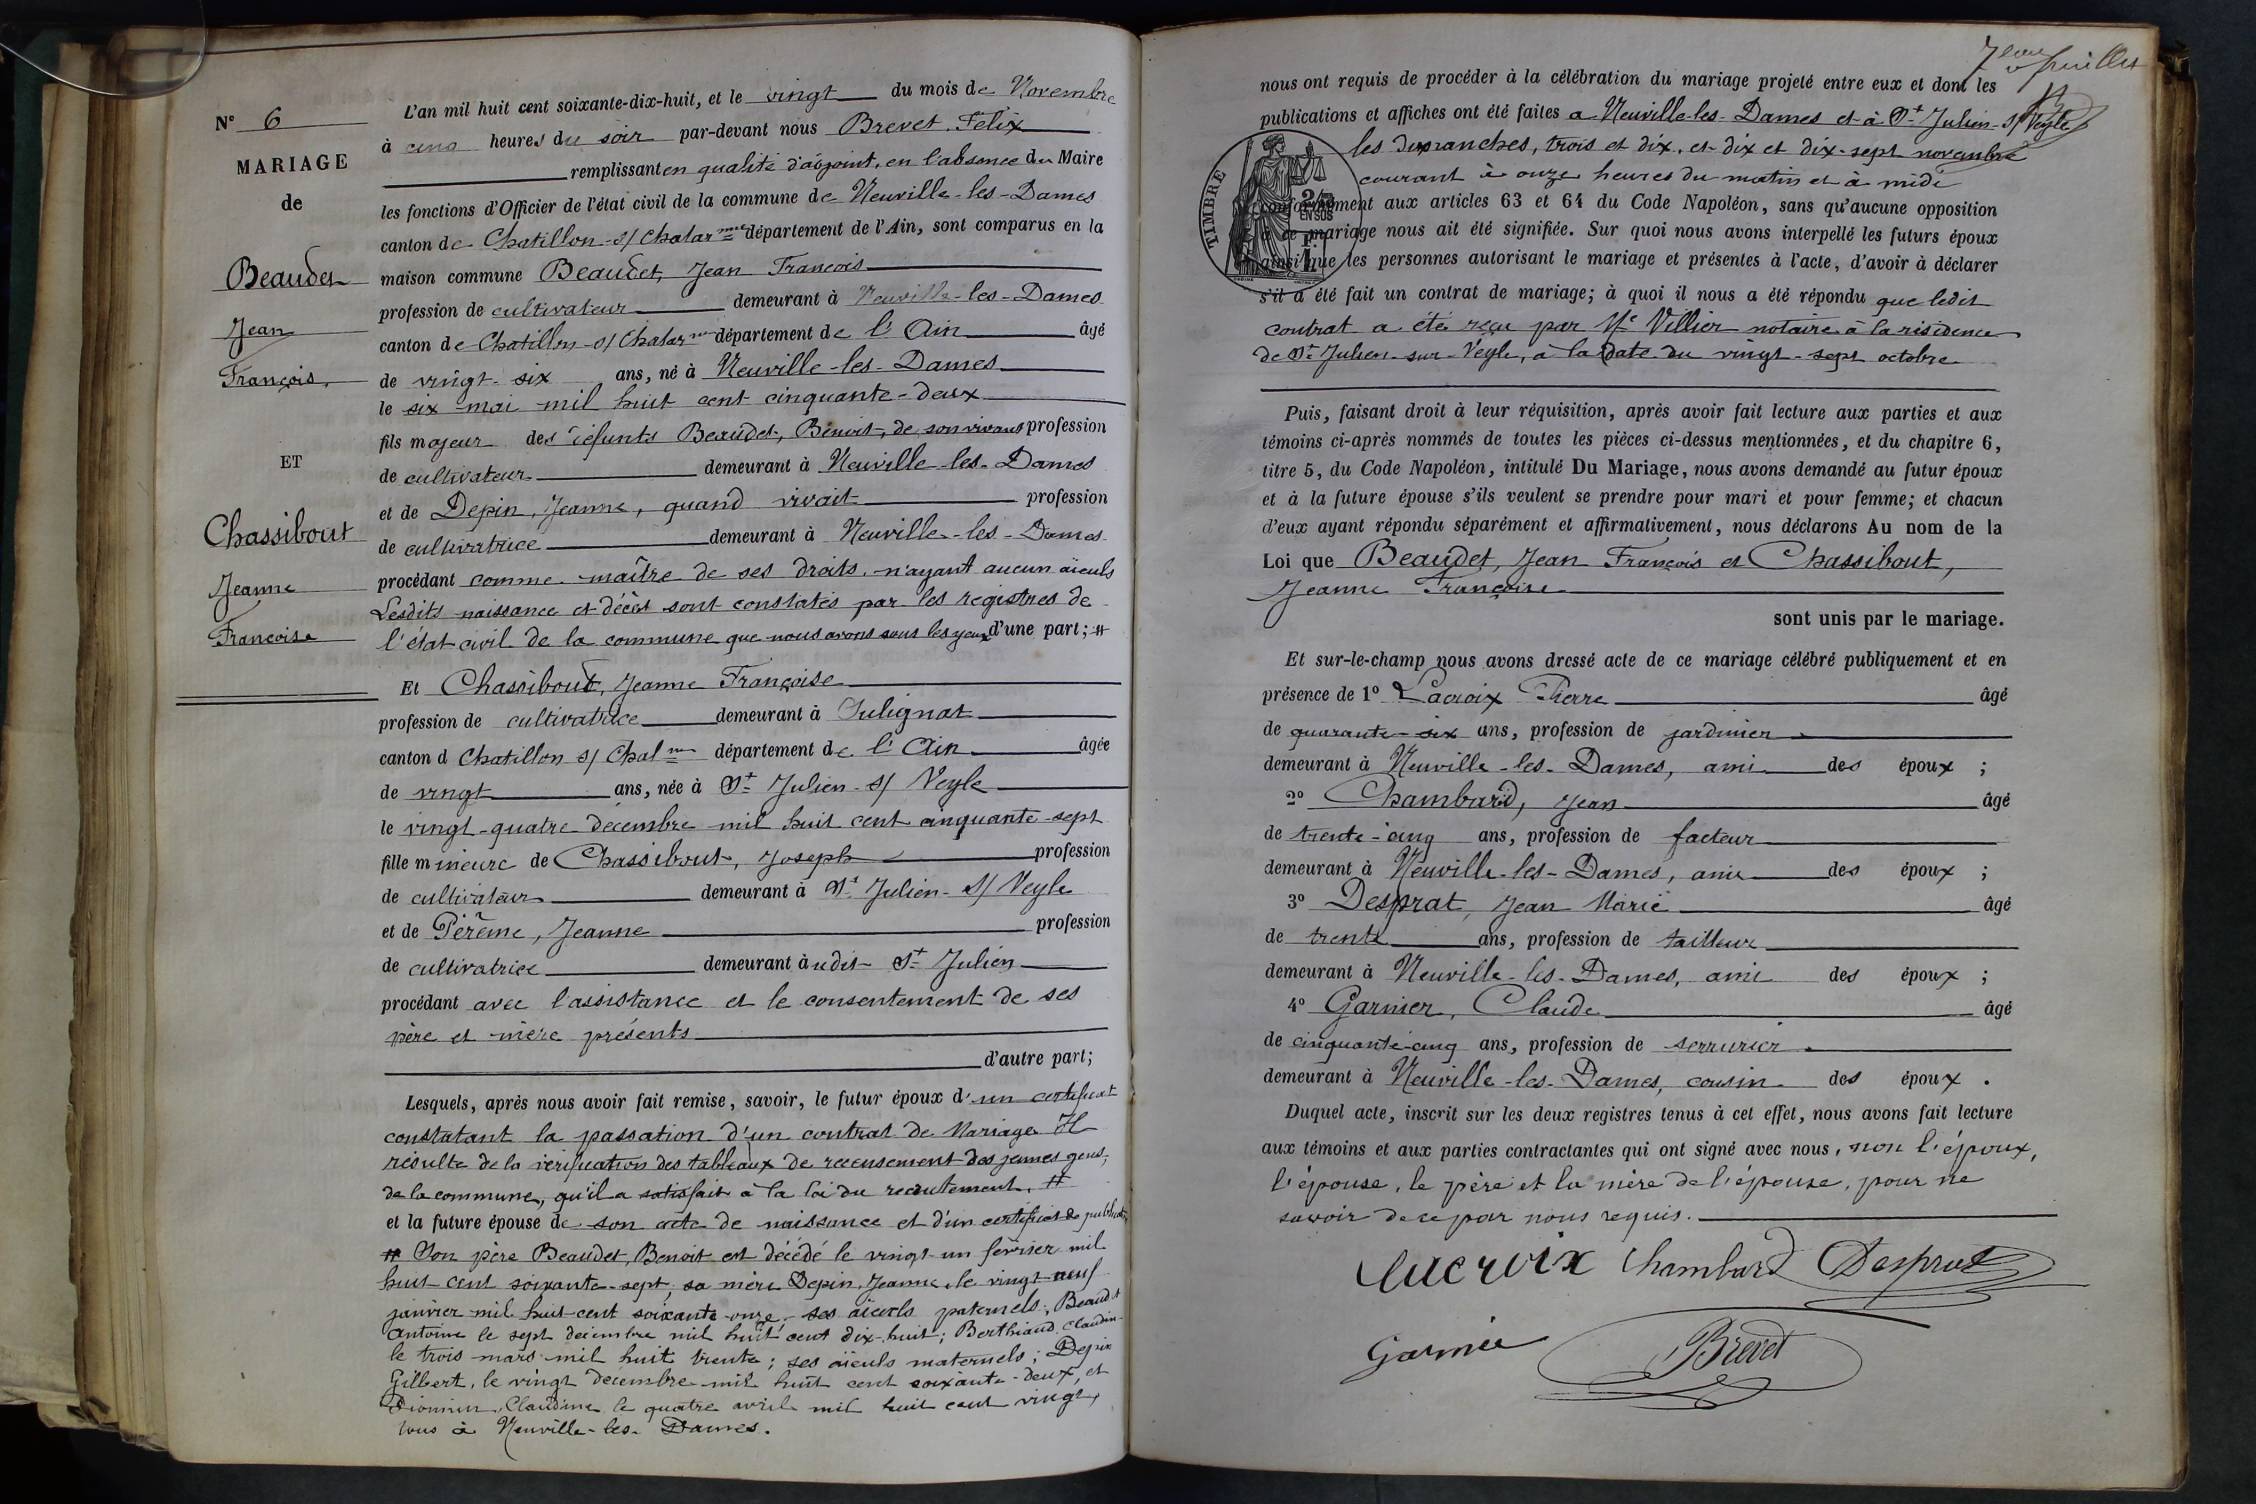 N° 6
MARIAGE
de
Beaudet
Jean
François,
ET
Chassibout
Jeanne
Françoise
L'an mil huit cent soixante-dix-huit, et le vingt du mois de Novembre
à cinq heures du soir par-devant nous Brevet, Félix
remplissant en qualité d'adjoint, en l'absence du Maire
les fonctions d'Officier de l'état civil de la commune de Neuville-les-Dames
canton de Chatillon-s/Chalar^nne département de l'Ain, sont comparus en la
maison commune Beaudet, Jean François
profession de cultivateur demeurant à Neuville-les-Dames
canton de Chatillon-s/Chalar^nne département de l'Ain âgé
de vingt-six ans, né à Neuville-les-Dames
le six mai mil huit cent cinquante-deux
fils majeur des défunts Beaudet, Benoit, de son vivant profession
de cultivateur demeurant à Neuville-les-Dames
et de Depin, Jeanne, quand vivait profession
de cultivatrice demeurant à Neuville-les-Dames
procédant comme maître de ses droits, n'ayant aucun aïeuls
Lesdits naissance et décès sont constatés par les registres de
l'état civil de la commune que nous avons sous les yeux d'une part; #
Et Chassibout, Jeanne Françoise
profession de cultivatrice demeurant à Sulignat
canton d Chatillon s/Chal^nne département de l'Ain âgée
de vingt ans, née à St Julien-s/Veyle
le vingt-quatre décembre mil huit cent cinquante-sept
fille mineure de Chassibout, Joseph profession
de cultivateur demeurant à St Julien-s/Veyle
et de Pérême, Jeanne profession
de cultivatrice demeurant àudit St Julien
procédant avec l'assistance et le consentement de ses
père et mère présents
d'autre part;
Lesquels, après nous avoir fait remise, savoir, le futur époux d'un certificat
constatant la passation d'un contrat de Mariage Il
résulte de la vérification des tableaux de recensement des jeunes gens,
de la commune, qu'il a satisfait à la loi du recrutement, #
et la future épouse de son acte de naissance et d'un certificat de publicat
# Son père Beaudet, Benoit est décédé le vingt-un février mil
huit cent soixante-sept, sa mère Depin, Jeanne, le vingt-neuf
janvier mil huit-cent soixante-onze, ses aïeuls paternels, Beaudet
Antoine le sept décembre mil huit cent dix-huit; Berthiaud Claudin
le trois mars mil huit trente; ses aïeuls maternels; Depin
Gilbert, le vingt décembre mil huit cent soixante-deux, et
Claudine le quatre avril mil huit cent vingt,
tous à Neuville-les-Dames.
7^ème feuillet
nous ont requis de procéder à la célébration du mariage projeté entre eux et dont les
publications et affiches ont été faites a Neuville-les-Dames et à St Julien-s/Veyle
les dimanches, trois et dix, et dix et dix-sept novembre
courant à onze heures du matin et à midi
conformément aux articles 63 et 64 du Code Napoléon, sans qu'aucune opposition
à ce mariage nous ait été signifiée. Sur quoi nous avons interpellé les futurs époux
ainsi que les personnes autorisant le mariage et présentes à l'acte, d'avoir à déclarer
s'il a été fait un contrat de mariage; à quoi il nous a été répondu que ledit
contrat a été reçu par Me Villier notaire à la résidence
de St Julien-sur-Veyle, à la date du vingt-sept octobre
TIMBRE
2/10 EN SUS
Puis, faisant droit à leur réquisition, après avoir fait lecture aux parties et aux
témoins ci-après nommés de toutes les pièces ci-dessus mentionnées, et du chapitre 6,
titre 5, du Code Napoléon, intitulé Du Mariage, nous avons demandé au futur époux
et à la future épouse s'ils veulent se prendre pour mari et pour femme; et chacun
d'eux ayant répondu séparément et affirmativement, nous déclarons Au nom de la
Loi que Beaudet, Jean François et Chassibout,
Jeanne Françoise
sont unis par le mariage.
Et sur-le-champ nous avons dressé acte de ce mariage célébré publiquement et en
présence de 1° Lacroix Pierre âgé
de quarante-six ans, profession de jardinier
demeurant à Neuville-les-Dames, ami des époux ;
2° Chambard, Jean âgé
de trente-cinq ans, profession de facteur
demeurant à Neuville-les-Dames, ami des époux ;
3° Desprat, Jean Marie âgé
de trente ans, profession de tailleur
demeurant à Neuville-les-Dames, ami des époux ;
4° Garnier, Claude âgé
de cinquante-cinq ans, profession de serrurier
demeurant à Neuville-les-Dames, cousin des époux .
Duquel acte, inscrit sur les deux registres tenus à cet effet, nous avons fait lecture
aux témoins et aux parties contractantes qui ont signé avec nous, non l'époux,
l'épouse, le père et la mère de l'épouse, pour ne
savoir de ce par nous requis.
Lacroix Chambard Desprat
Garnier Brevet